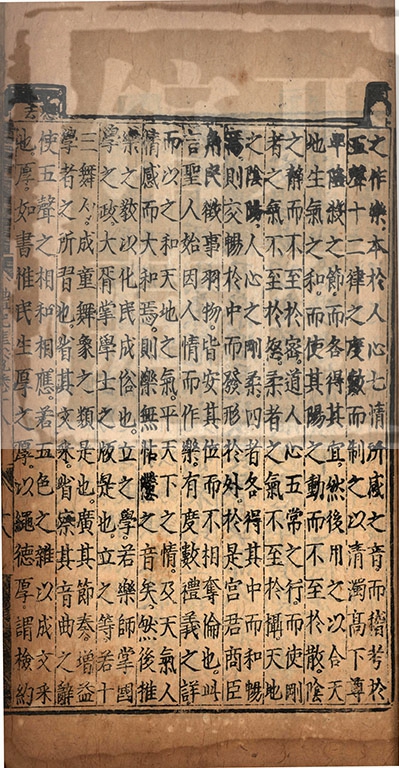 之作樂本於人心七情所感之音而稽考於
五聲十二律之度數而制之以清濁高下尊
卑隆殺之節而各得其宜然後用之以合天
地生氣之和而使其陽之動而不至於散陰
之靜而不至於密道人心五常之行而使剛
者之氣不至於怒柔者之氣不至於懾天地
之陰陽人心之剛柔四者各得其中而和暢
焉則交暢於中而發形於外於是宮君商臣
角民徵事羽物皆安其位而不相奪倫也此
言聖人始因人情而作樂有度數禮義之詳
而以之和天地之氣平天下之情及天氣人
情感而大和焉則樂無怗懘之音矣然後推
樂之教以化民成俗也立之學若樂師掌國
學之政大胥掌學士之版是也立之等若十
三舞勺成童舞象之類是也廣其節奏增益
學者之所習也省其文采省察其音曲之辭
使五聲之相和相應若五色之雜以成文采
也厚如書惟民生厚之厚以繩德厚謂檢約